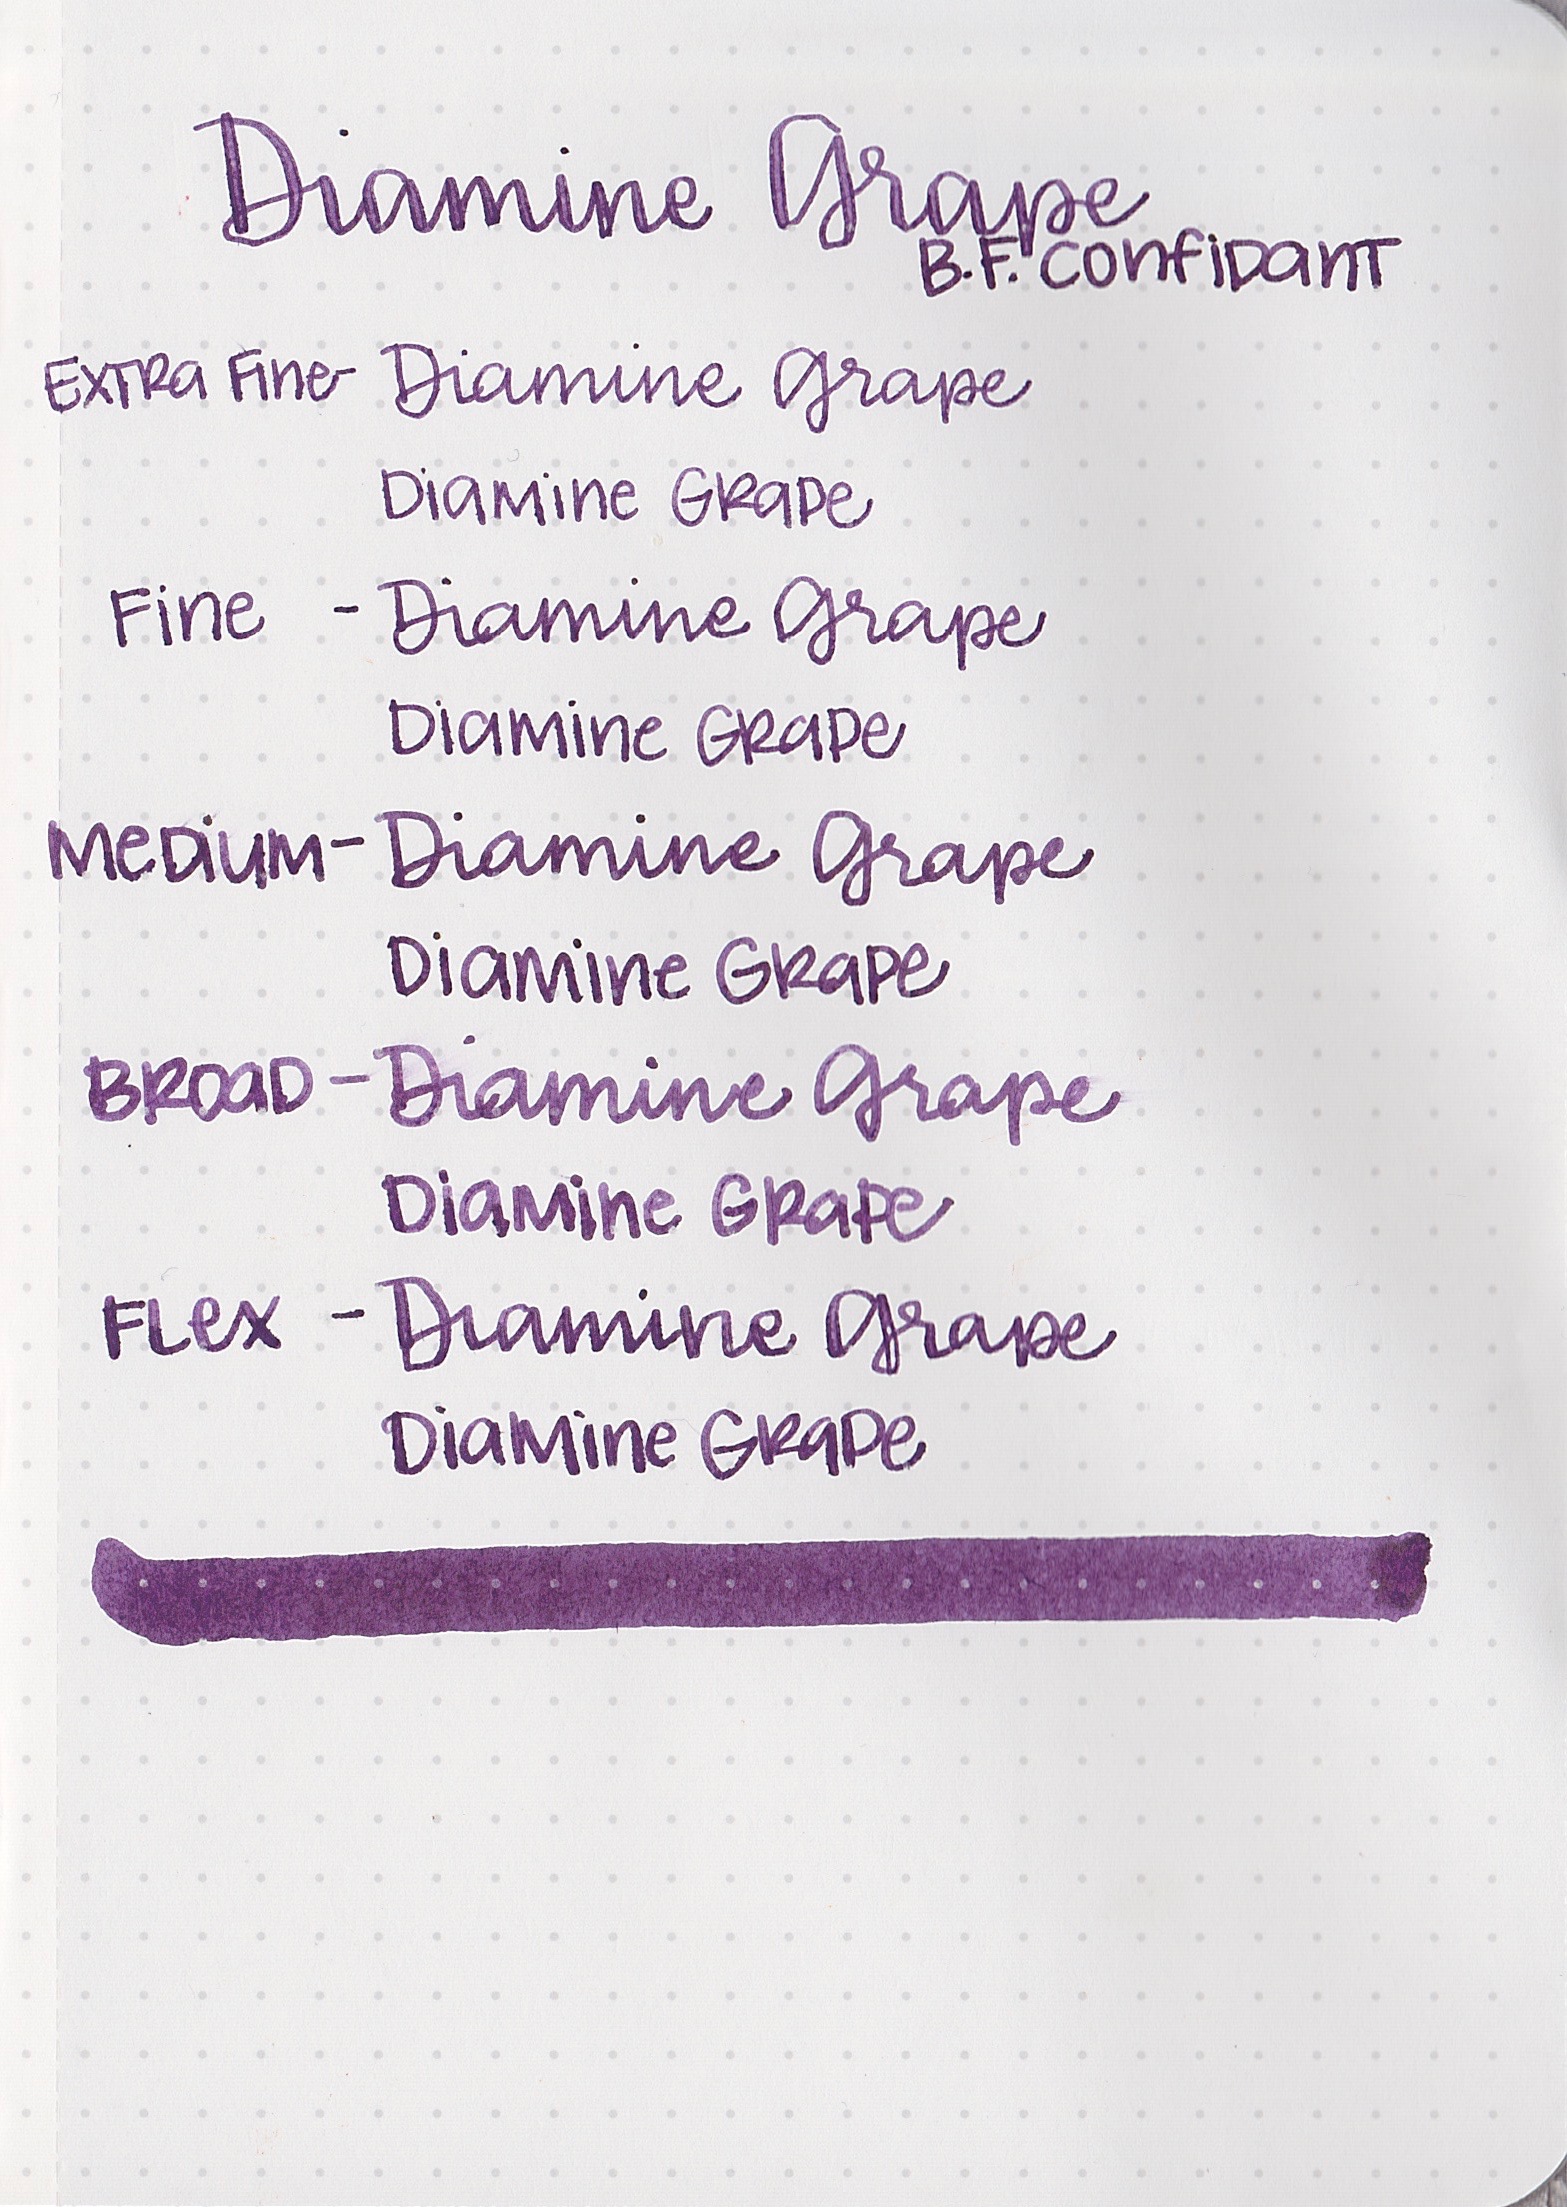 Diamine Grape
B.F. Confidant
Extra Fine- Diamine Grape
Diamine Grape
Fine - Diamine Grape
Diamine Grape
Medium - Diamine Grape
Diamine Grape
Broad - Diamine Grape
Diamine Grape
Flex - Diamine Grape
Diamine Grape